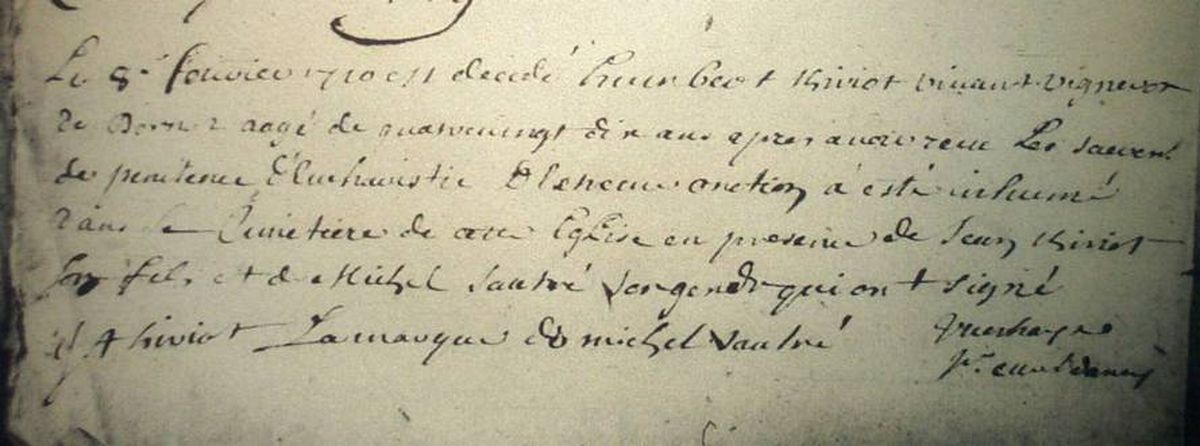 Le 8e fevrier 1710 est decedé humbert thiriot vivant vigneron
de Dorn aagé de quatrevingt dix ans apres avoir receu les sacrem.
de penitence d'Eucharistie & l'extreme onction à esté inhumé
dans le Cimetiere de cette Eglise en presence de Jean thiriot
son fils et de Michel Sautré son gendr qui ont signé
J thiriot La marque de michel Sautré